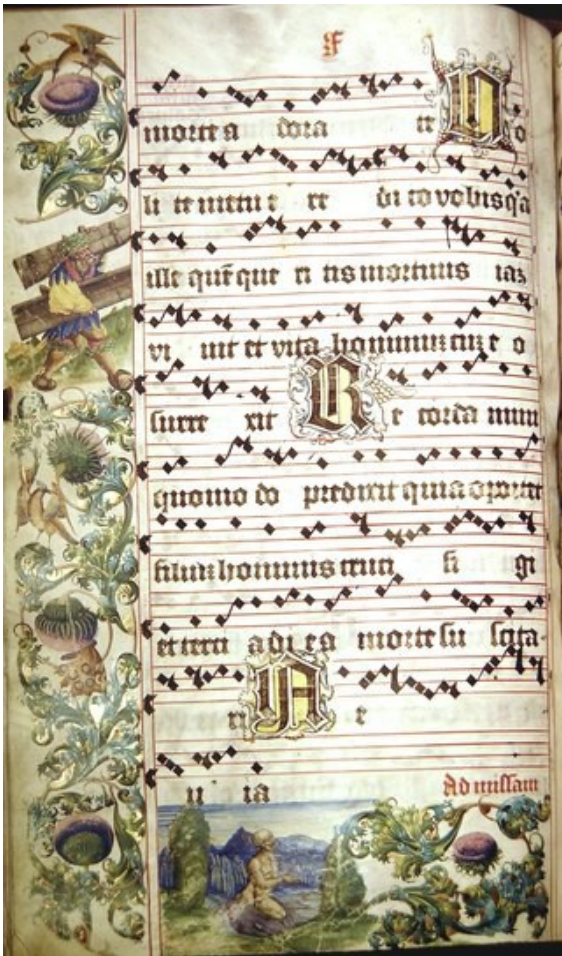 F
morte a dora te N o
li te metu e re di co vobis q'a
ille quē que ri tis mortuus iaz
vi uit et vita hominuz cuz e o
surre xit R e corda mini
quomo do predixit quia oportet
filiuz hominis cruci fi gi
et terci a di e a morte su scita
ri A e
u ia
Ad missam